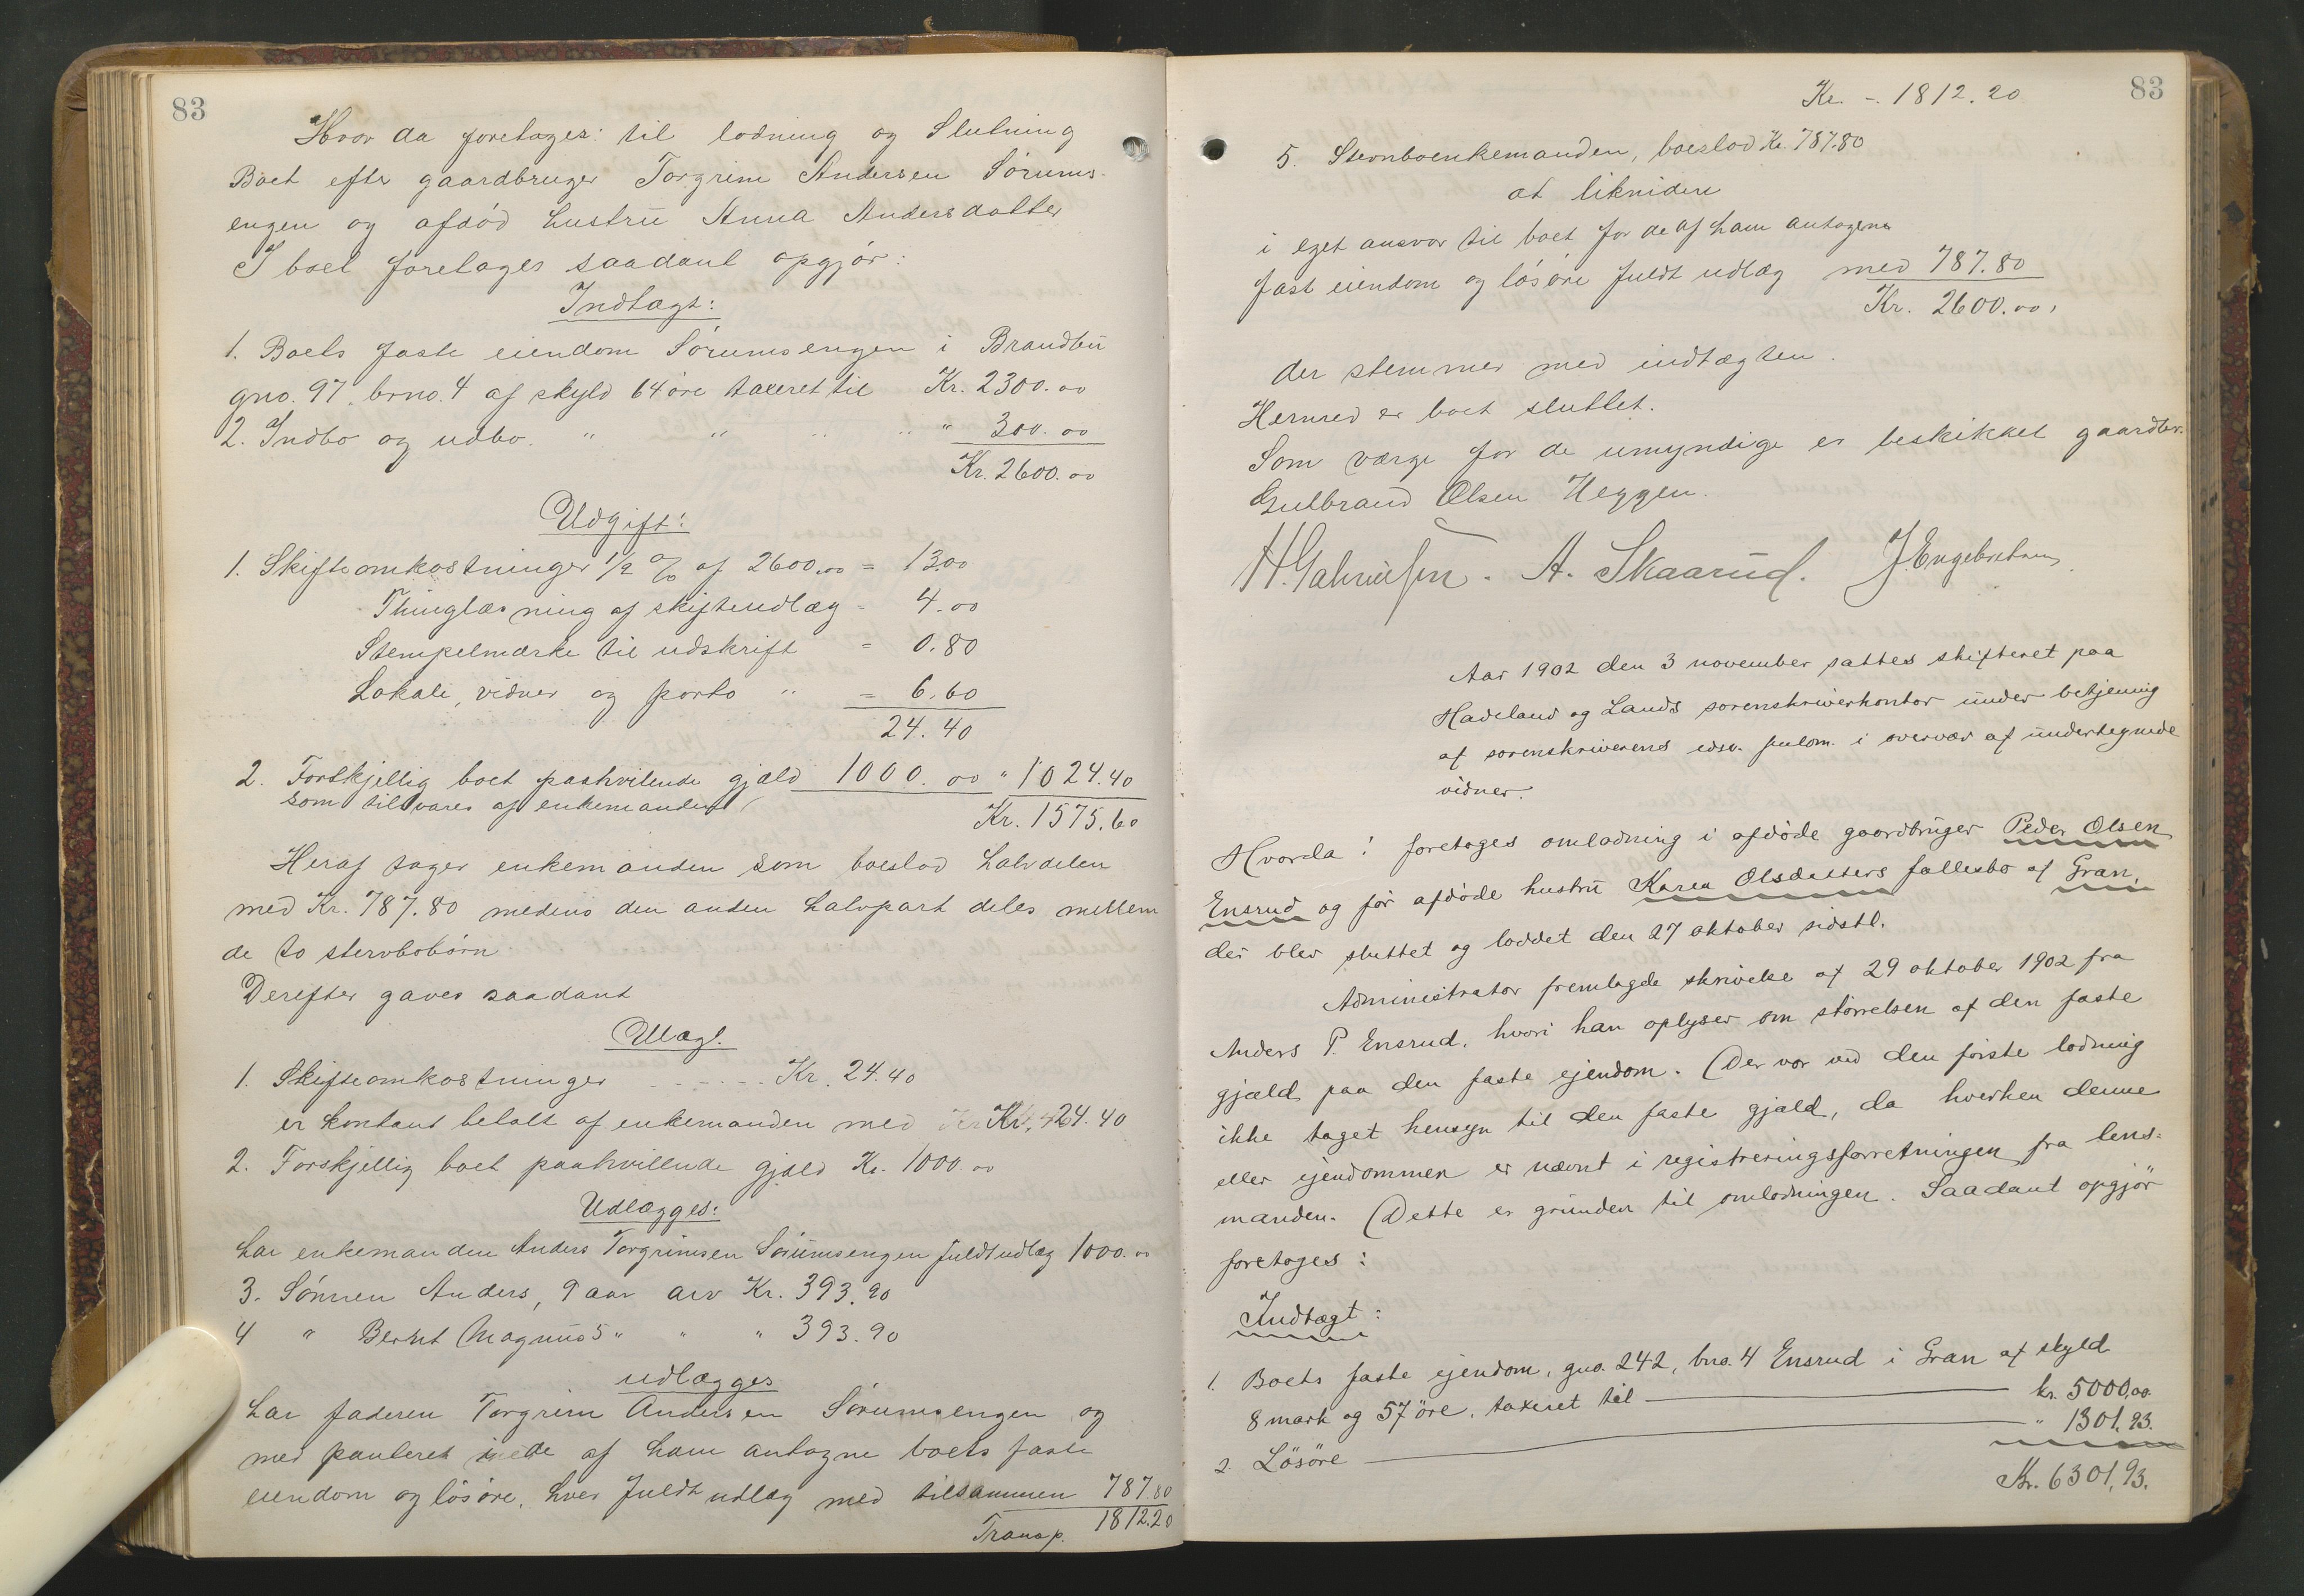 83
Hvor da foretages: til lodning og Slutning
Boet efter gaardbruger Torgrim Andersen Sørums-
engen og afdød hustru Anna Andersdatter
I boet foretages saadant opgjør:
Indtægt:
1. Boets faste eiendom Sørumsengen i Brandbu
gno. 97 brno. 4 af skyld 64 øre taxeret til Kr. 2300.00
2. Indbo og udbo. " " " 300.00
Kr. 2600.00
Udgift:
1. Skifteomkostninger 1/2 % af 2600.00 = 13.00
Thinglæsning af skifteudlæg = 4.00
Stempelmærke til udskrift = 0.80
Lokale, vidner og porto " = 6.60
24.40
2. Forskjellig boet paahvilende gjæld 1000.00 " 1024.40
som tilsvares af enkemanden
Kr. 1575.60
Heraf tager enkemanden som boeslod halvdelen
med Kr. 787.80 medens den anden halvpart deles mellem
de to stervbobørn
Derefter gaves saadant
Udlæg.
1. Skifteomkostninger - - - - - Kr. 24.40
er kontant betalt af enkemanden med Kr. 24.40
2. Forskjellig boet paahvillende gjæld Kr. 1000.00
Udlægges:
har enkemanden Anders Torgrimsen Sørumsengen fuldt udlæg 1000.00
3. Sønnen Anders, 9 aar arv Kr. 393.90
4 " Bernt Magnus 5 " " " 393.90
udlægges
har faderen Torgrim Andersen Sørumsengen og
med panteret i de af ham antagne boets faste
eiendom og løsøre, hver fuldt udlæg med tilsammen 787.80
Transp. 1812.20
Kr. -. 1812.20
83
5. Stervboenkemanden, boeslod Kr. 787.80
at likvidere
i eget ansvar til boet for de af ham antagne
fast eiendom og løsøre fuldt udlæg med 787.80
Kr. 2600.00,
der stemmer med indtægten.
Hermed er boet sluttet.
Som værge for de umyndige er beskikket gaardbr.
Gulbrand Olsen Heggen.
H. Gabrielsen. A. Skaarud. J. Engebretsen
Aar 1902 den 3 november sattes skifteret paa
Hadeland og Lands sorenskriverkontor under betjening
af sorenskriverens edsv. fuldm. i overvær af undertegnede
vidner.
Hvorda: foretages omlodning i afdøde gaardbruger Peder Olsen
Ensrud og før afdøde hustru Karen Olsdatters fællesbo af Gran,
der blev sluttet og loddet den 27 oktober sidstl.
Administrator fremlagde skrivelse af 29 oktober 1902 fra
Anders P. Ensrud, hvori han oplyser om størrelsen af den faste
gjæld paa den faste ejendom. (Der var ved den første lodning
ikke taget hensyn til den faste gjæld, da hverken denne
eller ejendommen er nævnt i registreringsforretningen fra lens-
manden. (Dette er grunden til omlodningen. Saadant opgjør
foretages:
Indtægt:
1. Boets faste ejendom, gno. 242, bno. 4 Ensrud i Gran af skyld
8 mark og 57 øre, taxeret til kr. 5000,00
2. Løsøre " 1301,93.
Kr. 6301,93.